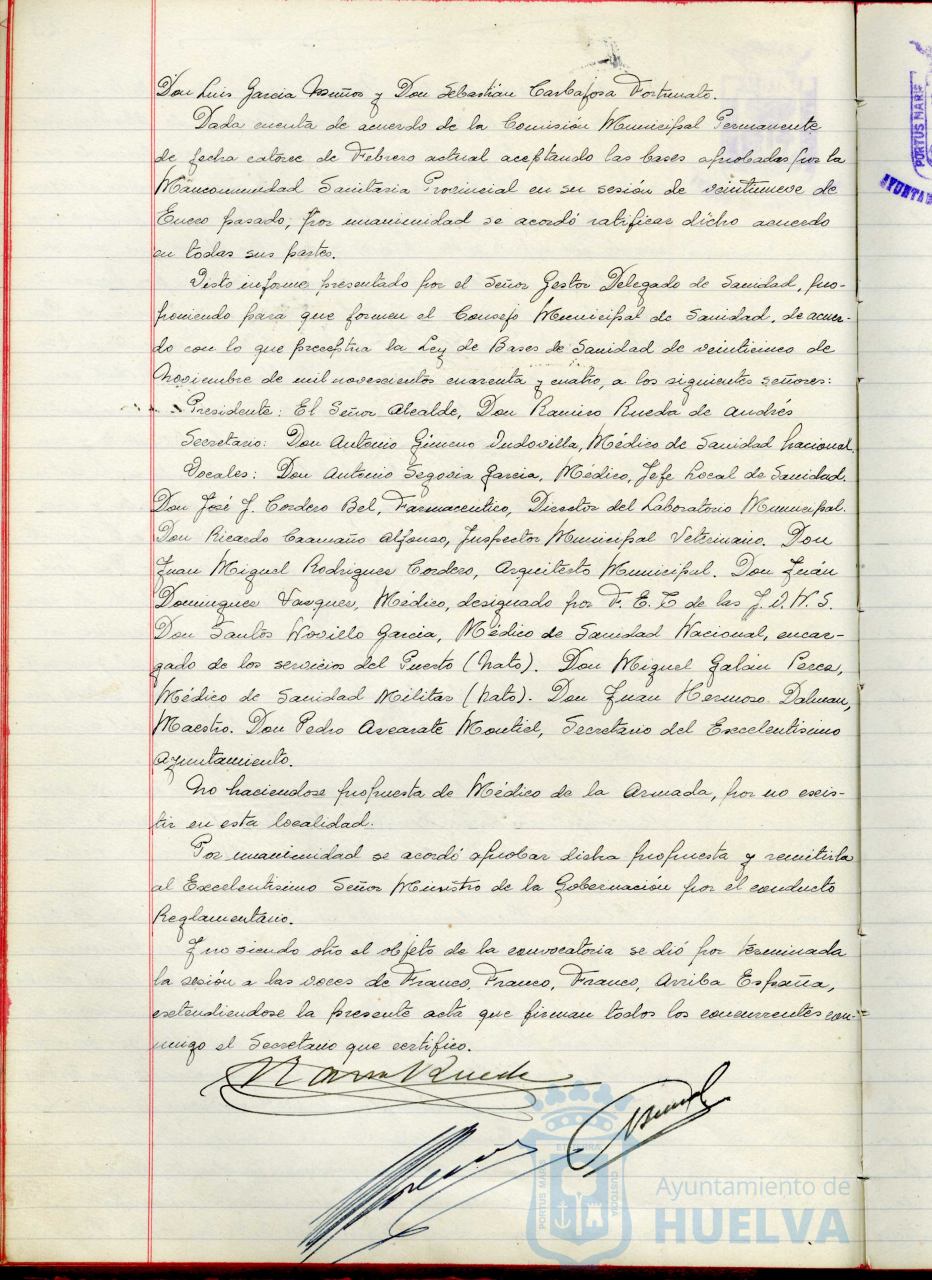 Don Luis Garcia Muños y Don Sebastián Carbajosa Fortunato.
Dada cuenta de acuerdo de la Comisión Municipal Permanente
de fecha catorce de Febrero actual aceptando las bases aprobadas por la
Mancomunidad Sanitaria Provincial en su sesión de veintinueve de
Enero pasado, por unanimidad se acordó ratificar dicho acuerdo
en todas sus partes.
Visto informe presentado por el Señor Gestor Delegado de Sanidad, pro-
poniendo para que formen el Consejo Municipal de Sanidad, de acuer-
do con lo que preceptua la Ley de Bases de Sanidad de veinticinco de
Noviembre de mil novescientos cuarenta y cuatro, a los siguientes señores:
Presidente: El Señor Alcalde, Don Ramiro Rueda de Andrés
Secretario: Don Antonio Gimeno Indovilla, Médico de Sanidad Nacional.
Vocales: Don Antonio Segovia Garcia, Médico, Jefe Local de Sanidad.
Don José J. Cordero Bel, Farmaceutico, Director del Laboratorio Municipal.
Don Ricardo Caamaño Alfonso, Inspector Municipal Veterinario. Don
Juan Miguel Rodrigues Cordero, Arquitecto Municipal. Don Juán
Domingues Vasques, Médico, designado por F. E. T. de las J.O.N.S.
Don Santos Novillo Garcia, Médico de Sanidad Nacional, encar-
gado de los servicios del Puerto (nato). Don Miguel Galán Perea,
Médico de Sanidad Militar (nato). Don Juan Hermoso Dalman,
Maestro. Don Pedro Ascarate Montiel, Secretario del Excelentisimo
Ayuntamiento.
No haciendose propuesta de Médico de la Armada, por no exis-
tir en esta localidad.
Por unanimidad se acordó aprobar dicha propuesta y remitirla
al Excelentisimo Señor Ministro de la Gobernación por el conducto
Reglamentario.
Y no siendo otro el objeto de la convocatoria se dió por terminada
la sesión a las voces de Franco, Franco, Franco, Arriba España,
extendiendose la presente acta que firman todos los concurrentes con-
migo el Secretario que certifico.
Ayuntamiento de
HUELVA
PORTUS MARIS